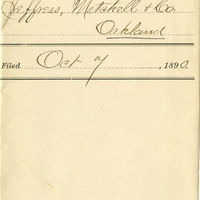 Jeffress, Mitchell & Co.
Oakland
Filed Oct 9, 1890.